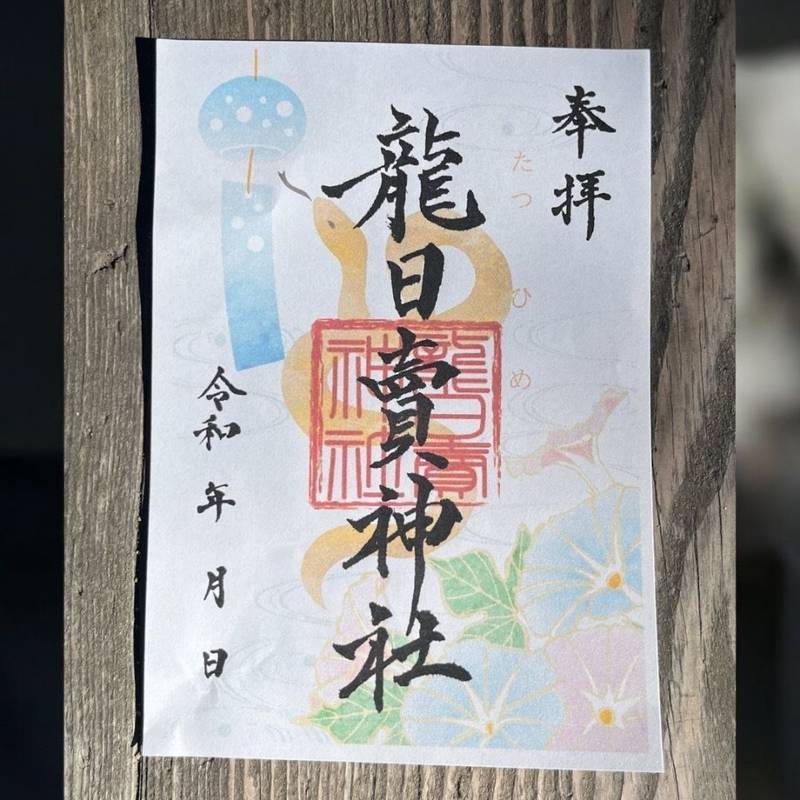 奉拝
たつひめ
龍日賣神社
龍日賣神社
令和 年 月 日